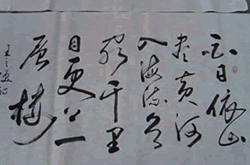 白日依山
尽黄河
入海流欲
穷千里
目更上一
层楼